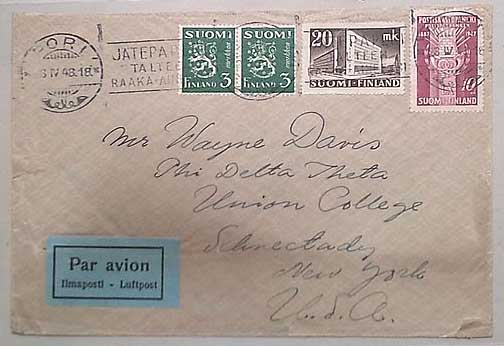 PORI
IV 48.18
JÄTEPA
TALTEE
RAAKA-AI
SUOMI
3
FINLAND
SUOMI
3
FINLAND
20 mk
SUOMI-FINLAND
POSTISÄÄSTÖPANKKI
POSTSPARBANKEN
1887 1947
10
SUOMI FINLAND
Mr Wayne Davis
Phi Delta Theta
Union College
Schnectady
New York
U.S.A.
Par avion
Ilmaposti - Luftpost